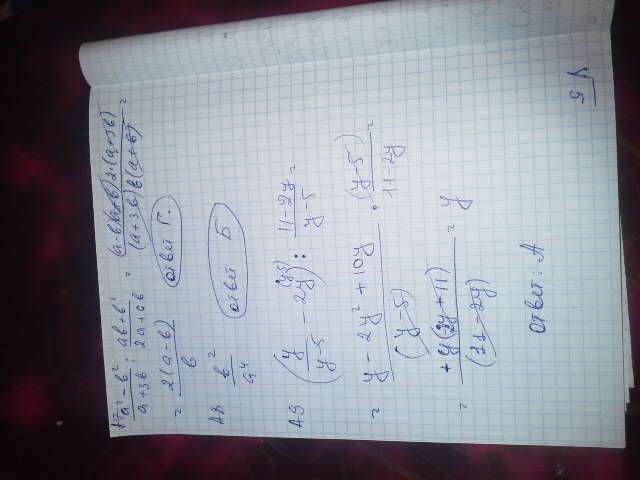 A7 (a² - b²)/(a + 3b) : (ab + b²)/(2a + 6b) = ((a - b)(a + b) 2·(a + 3b))/((a + 3b) b(a + b)) =
= 2(a - b)/b ответ Г.
A8 b²/a⁴ ответ Б
A9 (y/(y-5) - 2y^((y-5))) : (11 - 2y)/(y - 5) =
= (y - 2y² + 10y)/(y - 5) · (y - 5)/(11 - 2y) =
= + y(-2y + 11)/(11 - 2y) = y
Ответ: А
√5